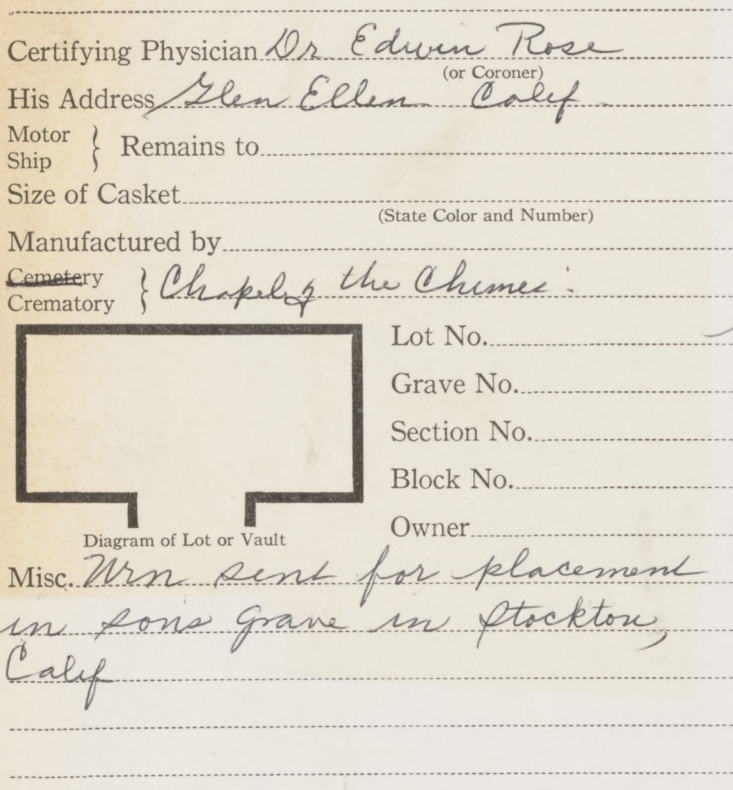 Certifying Physician Dr Edwin Rose
(or Coroner)
His Address Glen Ellen Calif.
Motor
Ship } Remains to
Size of Casket
(State Color and Number)
Manufactured by
Cemetery
Crematory } Chapel of the Chimes.
Lot No.
Grave No.
Section No.
Block No.
Owner
Diagram of Lot or Vault
Misc. Urn sent for placement
in sons grave in Stockton,
Calif